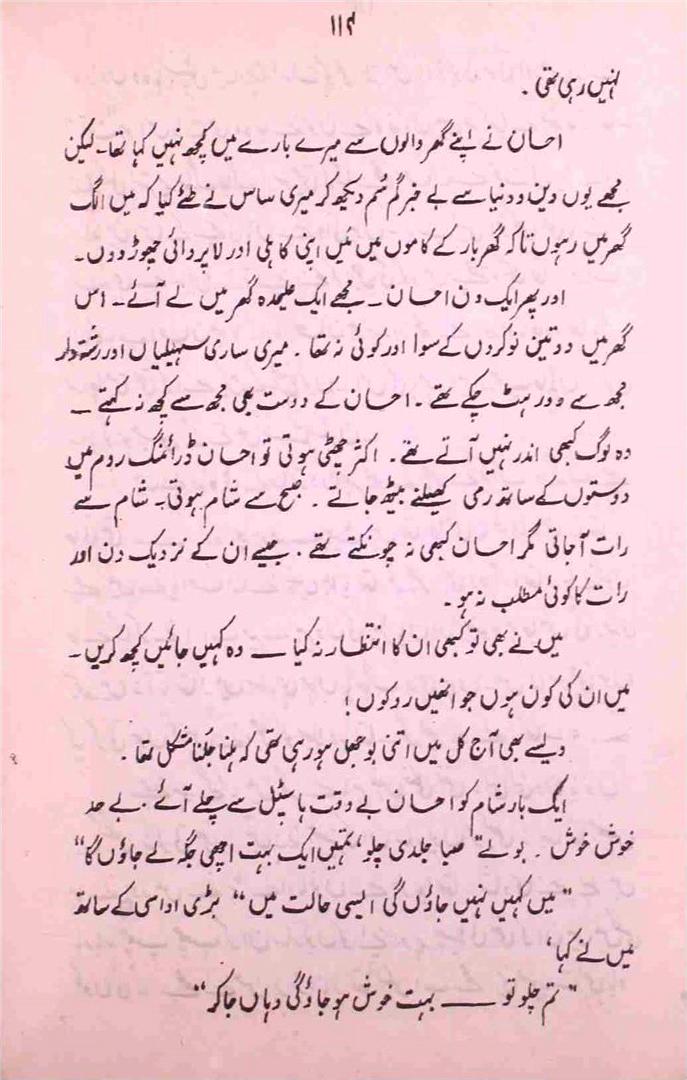 ۱۱۴
نہیں رہی تھی ۔
احسان نے اپنے گھر والوں سے میرے بارے میں کچھ نہیں کہا تھا۔ لیکن
مجھے یوں دین و دنیا سے بے خبر گم سُم دیکھ کر میری ساس نے طئے کیا کہ میں الگ
گھر میں رہوں تاکہ گھر بار کے کاموں میں میں اپنی کاہلی اور لاپروائی چھوڑ دوں ۔
اور پھر ایک دن احسان ۔ مجھے ایک علیحدہ گھر میں لے آئے ۔ اس
گھر میں دو تین نوکروں کے سوا اور کوئی نہ تھا ۔ میری ساری سہیلیاں اور رشتہ دار
مجھ سے دور ہٹ چکے تھے ۔ احسان کے دوست بھی مجھ سے کچھ نہ کہتے ۔
وہ لوگ کبھی اندر نہیں آتے تھے ۔ اکثر چھٹی ہوتی تو احسان ڈرائنگ روم میں
دوستوں کے ساتھ رمی کھیلنے بیٹھ جاتے ۔ صبح سے شام ہوتی ۔ شام سے
رات آ جاتی مگر احسان کبھی نہ چونکتے تھے ۔ جیسے ان کے نزدیک دن اور
رات کا کوئی مطلب نہ ہو ۔
میں نے بھی تو کبھی ان کا انتظار نہ کیا ــ وہ کہیں جائیں کچھ کریں ۔
میں ان کی کون ہوں جو انھیں روکوں !
ویسے بھی آج کل میں اتنی بوجھل ہو رہی تھی کہ ہلنا جلنا مشکل تھا ۔
ایک بار شام کو احسان بے وقت ہاسپٹل سے چلے آئے ۔ بے حد
خوش خوش ۔ بولے " صبا جلدی چلو ، تمہیں ایک بہت اچھی جگہ لے جاؤں گا "
" میں کہیں نہیں جاؤں گی ایسی حالت میں " بڑی اداسی کے ساتھ
میں نے کہا ،
" تم چلو تو ــــ بہت خوش ہو جاؤ گی وہاں جا کر "